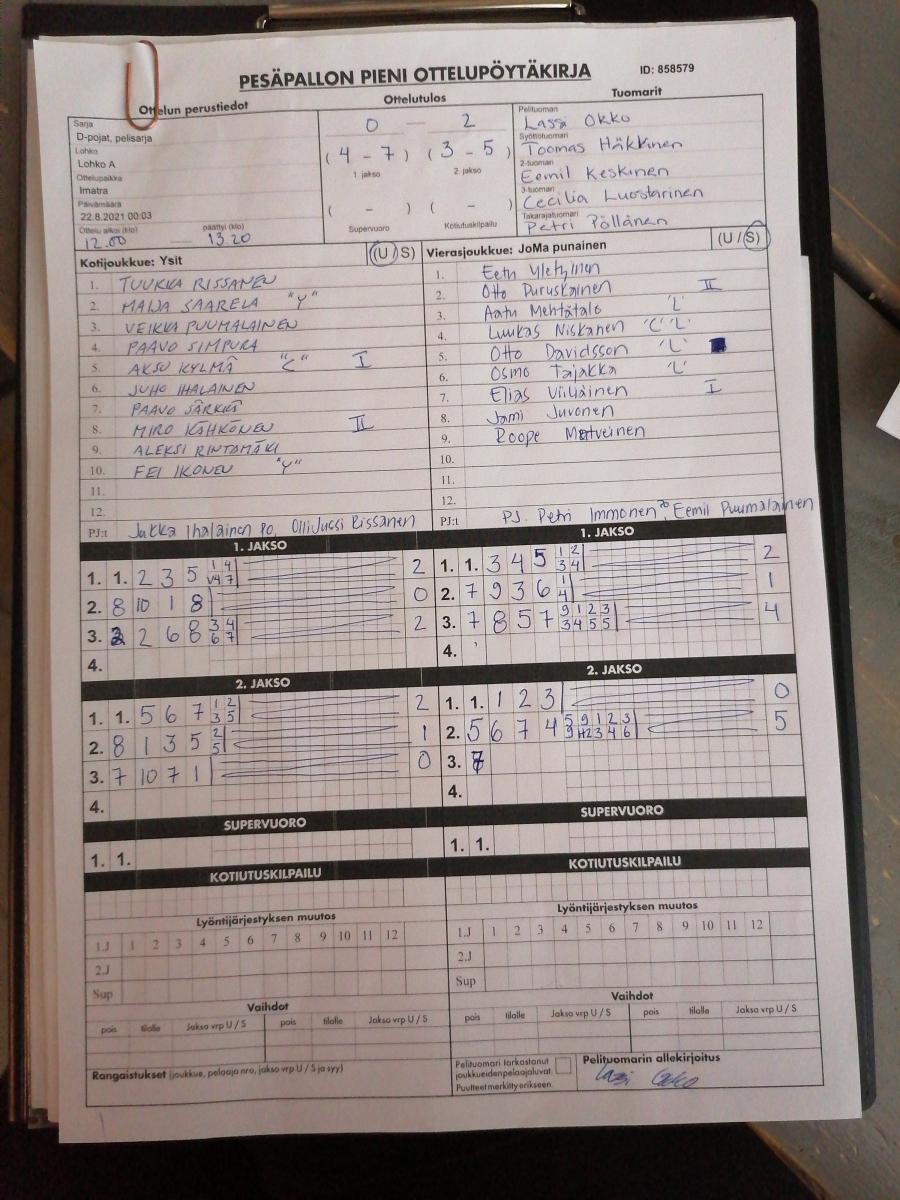 PESÄPALLON PIENI OTTELUPÖYTÄKIRJA ID: 858579
Ottelun perustiedot
Sarja
D-pojat, pelisarja
Lohko
Lohko A
Ottelupaikka
Imatra
Päivämäärä
22.8.2021 00:03
Ottelu alkoi (klo) päättyi (klo)
12.00 — 13.20
Ottelutulos
0 — 2
( 4 - 7 ) ( 3 - 5 )
1. jakso 2. jakso
( - ) ( - )
Supervuoro Kotiutuskilpailu
Tuomarit
Pelituomari
Lassi Okko
Syöttötuomari
Toomas Häkkinen
2-tuomari
Eemil Keskinen
3-tuomari
Cecilia Luostarinen
Takarajatuomari
Petri Pöllänen
Kotijoukkue: Ysit (U / S)
1. TUUKKA RISSANEN
2. MAIJA SAARELA "Y"
3. VEIKKA PUUMALAINEN
4. PAAVO SIMPURA
5. AKSU KYLMÄ "C" I
6. JUHO IHALAINEN
7. PAAVO SÄRKKÄ
8. MIRO KÄHKÖNEN II
9. ALEKSI RINTAMÄKI
10. FEI IKONEN "Y"
11.
12.
PJ:t Jukka Ihalainen PO, Olli Jussi Rissanen
Vierasjoukkue: JoMa punainen (U / S)
1. Eetu Yletyinen
2. Otto Puruskainen II
3. Aatu Mehtätalo 'L'
4. Luukas Niskanen 'C' 'L'
5. Otto Davidsson 'L'
6. Osmo Tajakka 'L'
7. Elias Viiliäinen I
8. Jami Juvonen
9. Roope Matveinen
10.
11.
12.
PJ:t PJ. Petri Immonen, Eemil Puumalainen
1. JAKSO
1. 1. 2 3 5 2
2. 8 10 1 8 0
3. 2 6 8 3 4 6 7 2
4.
1. JAKSO
1. 1. 3 4 5 1 2 3 4 2
2. 7 9 3 6 1 4 1
3. 7 8 5 7 9 1 2 3 3 4 5 5 4
4.
2. JAKSO
1. 1. 5 6 7 1 2 3 5 2
2. 8 1 3 5 2 5 1
3. 7 10 7 1 0
4.
2. JAKSO
1. 1. 1 2 3 0
2. 5 6 7 4 5 9 1 2 3 5
3.
4.
SUPERVUORO
1. 1.
SUPERVUORO
1. 1.
KOTIUTUSKILPAILU
KOTIUTUSKILPAILU
Lyöntijärjestyksen muutos
1.J 1 2 3 4 5 6 7 8 9 10 11 12
2.J
Sup
Lyöntijärjestyksen muutos
1.J 1 2 3 4 5 6 7 8 9 10 11 12
2.J
Sup
Vaihdot
pois tilalle Jakso vrp U / S pois tilalle Jakso vrp U / S
Vaihdot
pois tilalle Jakso vrp U / S pois tilalle Jakso vrp U / S
Rangaistukset (joukkue, pelaaja nro, jakso vrp U / S ja syy)
Pelituomari tarkastanut
joukkueiden pelaajaluvat.
Puutteet merkitty erikseen.
Pelituomarin allekirjoitus
Lassi Okko